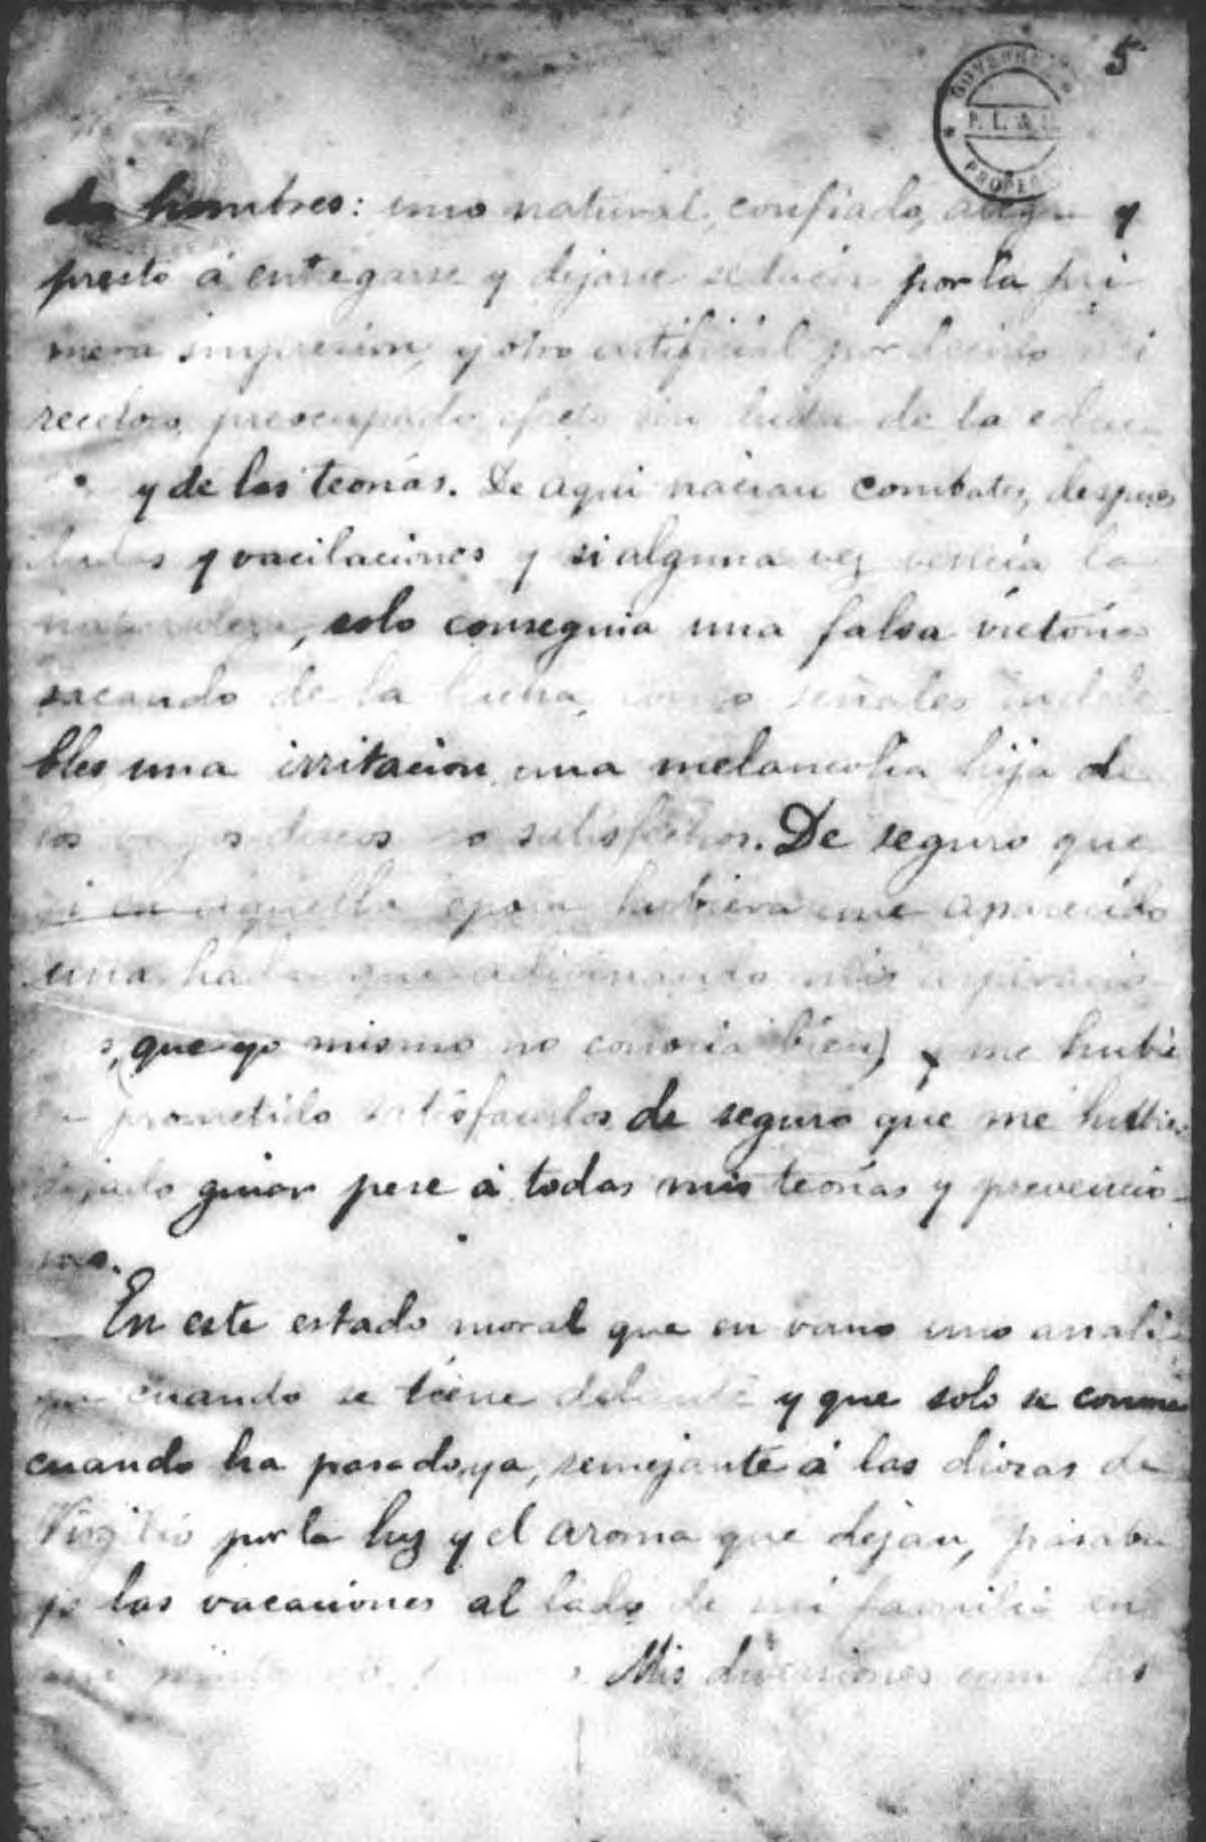 5
GOVERNMENT
P. L. & 
PROPERTY
dos hombres: uno natural, confiado, alegre y
presto á entegarse y dejarse seducir por la pri
mera impresion, y otro artificial por decirlo
receloso, preocupado, sin duda de la
y de las teorías. De aqui nacian combates, despues
dudas y vacilaciones y si alguna vez vencia la
naturaleza, solo conseguia una falsa victoria
sacando de la lucha, como señales indele
bles, una irritacion, una melancolia hija de
los vagos deseos no satisfechos. De seguro que
si en aquella época hubiera me aparecido
una hada que adivinando mis aspiracio
s, que yo mismo no conocia bien) y me hubie
prometido satisfacerlos de seguro que me hubie
dejado guiar pese á todas mis teorías y prevencio-
nes.
En este estado moral que en vano uno anali
cuando se tiene delante y que solo se conoce
cuando ha pasado ya, semejante á las diosas de
Virgilio por la luz y el aroma que dejan, pasaba
yo las vacaciones al lado de mi familia en
mi Mis diversiones eran las